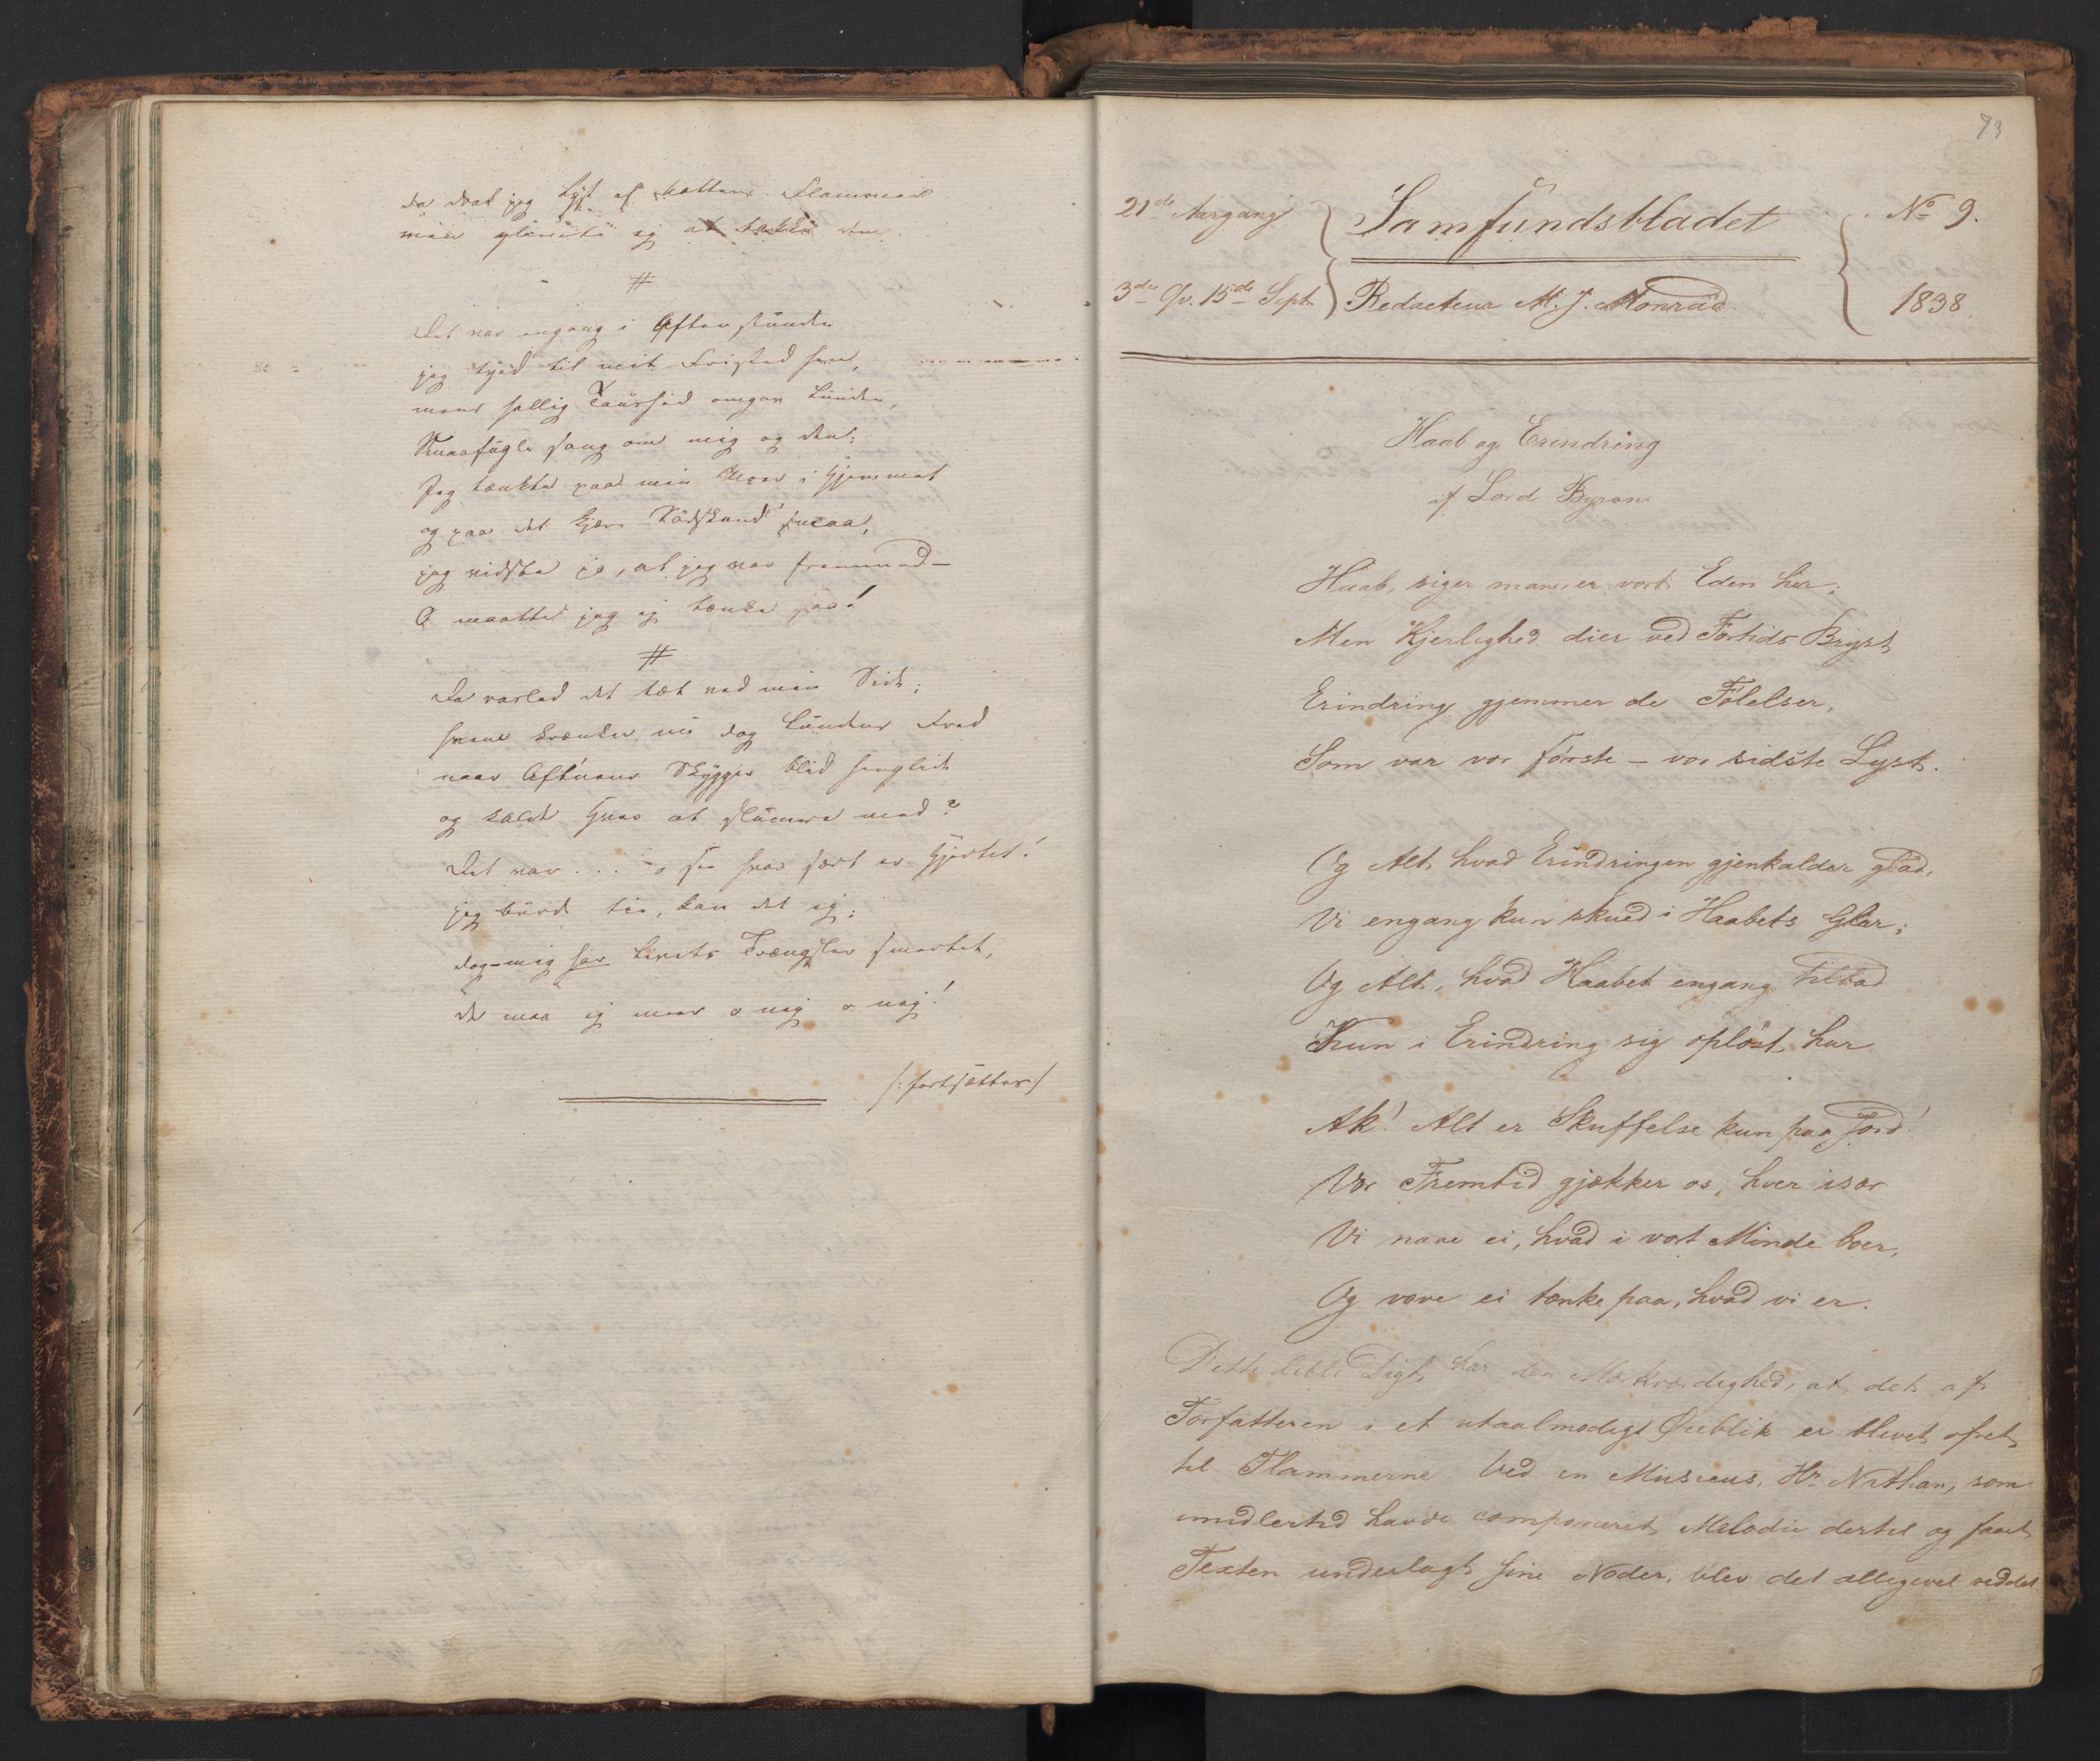 da drak jeg Lyst af Nattens Flammer
men glemte ej at takke dem.
#
Det var engang i Aftenstunden
jeg tyed til mit Fristed hen,
mens hellig Taushed omgav Lunden,
Smaafugle sang om mig og den;
Jeg tænkte paa min Moer i Hjemmet
og paa det kjære Sødskend smaa,
jeg vidste jo, at jeg var fremmed —
O maatte jeg ej tænke saa!
#
Da rasled det tæt ved min Side;
hvem krænker nu dog Lundens Fred
naar Aft'nens Skygger blid
og kaldt hver at slumre med?
Det var . . . o se hvor sært er Hjertet!
jeg burde tie, kan det ej;
dog-mig har Livets Trængsler smertet,
de maa ej meer o nej o nej!
/: fortsættes :/
73
21de Aargang
Samfundsbladet
No 9.
3die Qv. 15de Sept.
Redacteur M. J. Monrad.
1838.
Haab og Erindring
af Lord Byron
Haab, siger man, er vort Eden her;
Men Kjerlighed dier ved Fortids Bryst
Erindring gjemmer de Følelser,
Som var vor første – vor sidste Lyst.
Og Alt, hvad Erindringen gjenkalder glad,
Vi engang kun skued i Haabets Glar;
Og Alt, hvad Haabet engang tilbad
Kun i Erindring sig opløst har
Ak! Alt er Skuffelse kun paa Jord!
Vor Fremtid gjækker os, hver især
Vi naae ei, hvad i vort Minde boer,
Og vove ei tænke paa, hvad vi er.
Dette lille Digt har den Mærkværdighed, at det af
Forfatteren i et utaalmodigt Øieblik er blevet ofret
til Flammerne Ved en Musicus, Hr. Nathan, som
imidlertid havde componeret Melodie dertil og faaet
Texten underlagt sine Noder, blev det alligevel reddet